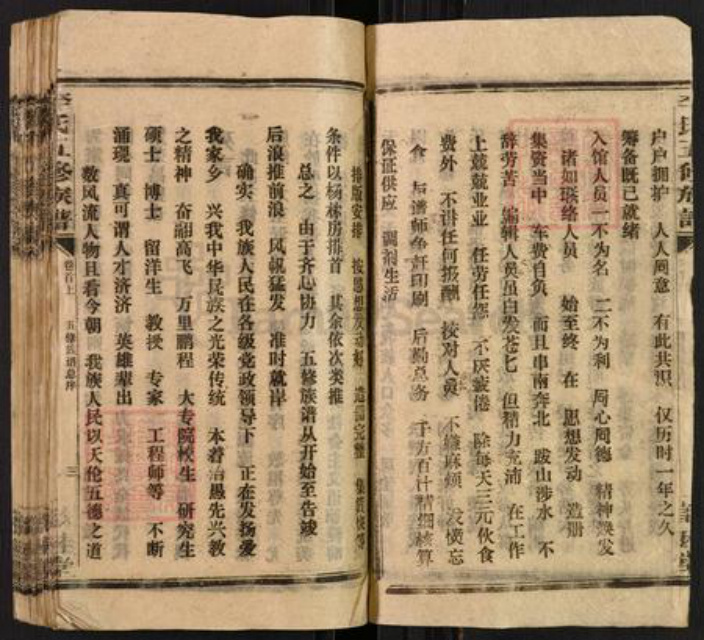 户户拥护 人人同意 有此共识 仅历时一年之久
筹备既已就绪
入馆人员一不为名 二不为利 同心同德 精神焕发
诸如联络人员 始至终 在 思想发动 造册
集资当中 车费自负 而且串南奔北 跋山涉水 不
辞劳苦 编辑人员虽白发苍匕 但精力充沛 在工作
上兢兢业业 任劳任怨 不厌疲倦 除每天三元伙食
费外 不讲任何报酬 校对人员 不嫌麻烦 发愤忘
食 与谱师争赶印刷 后勤总务 千方百计精细核算
保证供应 调剂生活
排版安排 按思想发动好 造册完整 集资快等
条件以杨林房排首 其余依次类推
总之 由于齐心协力 五修族谱从开始至告竣
后浪推前浪 风帆猛发 准时就岸
确实 我族人民在各级党政领导下 正在发扬爱
我家乡 兴我中华民族之光荣传统 本着治愚先兴教
之精神 奋翮高飞 万里鹏程 大专院校生 研究生
硕士 博士 留洋生 教授 专家 工程师等 不断
涌现 真可谓人才济济 英雄辈出
数风流人物且看今朝 我族人民以天伦五德之道
五修族谱总序
三
李氏五修族谱